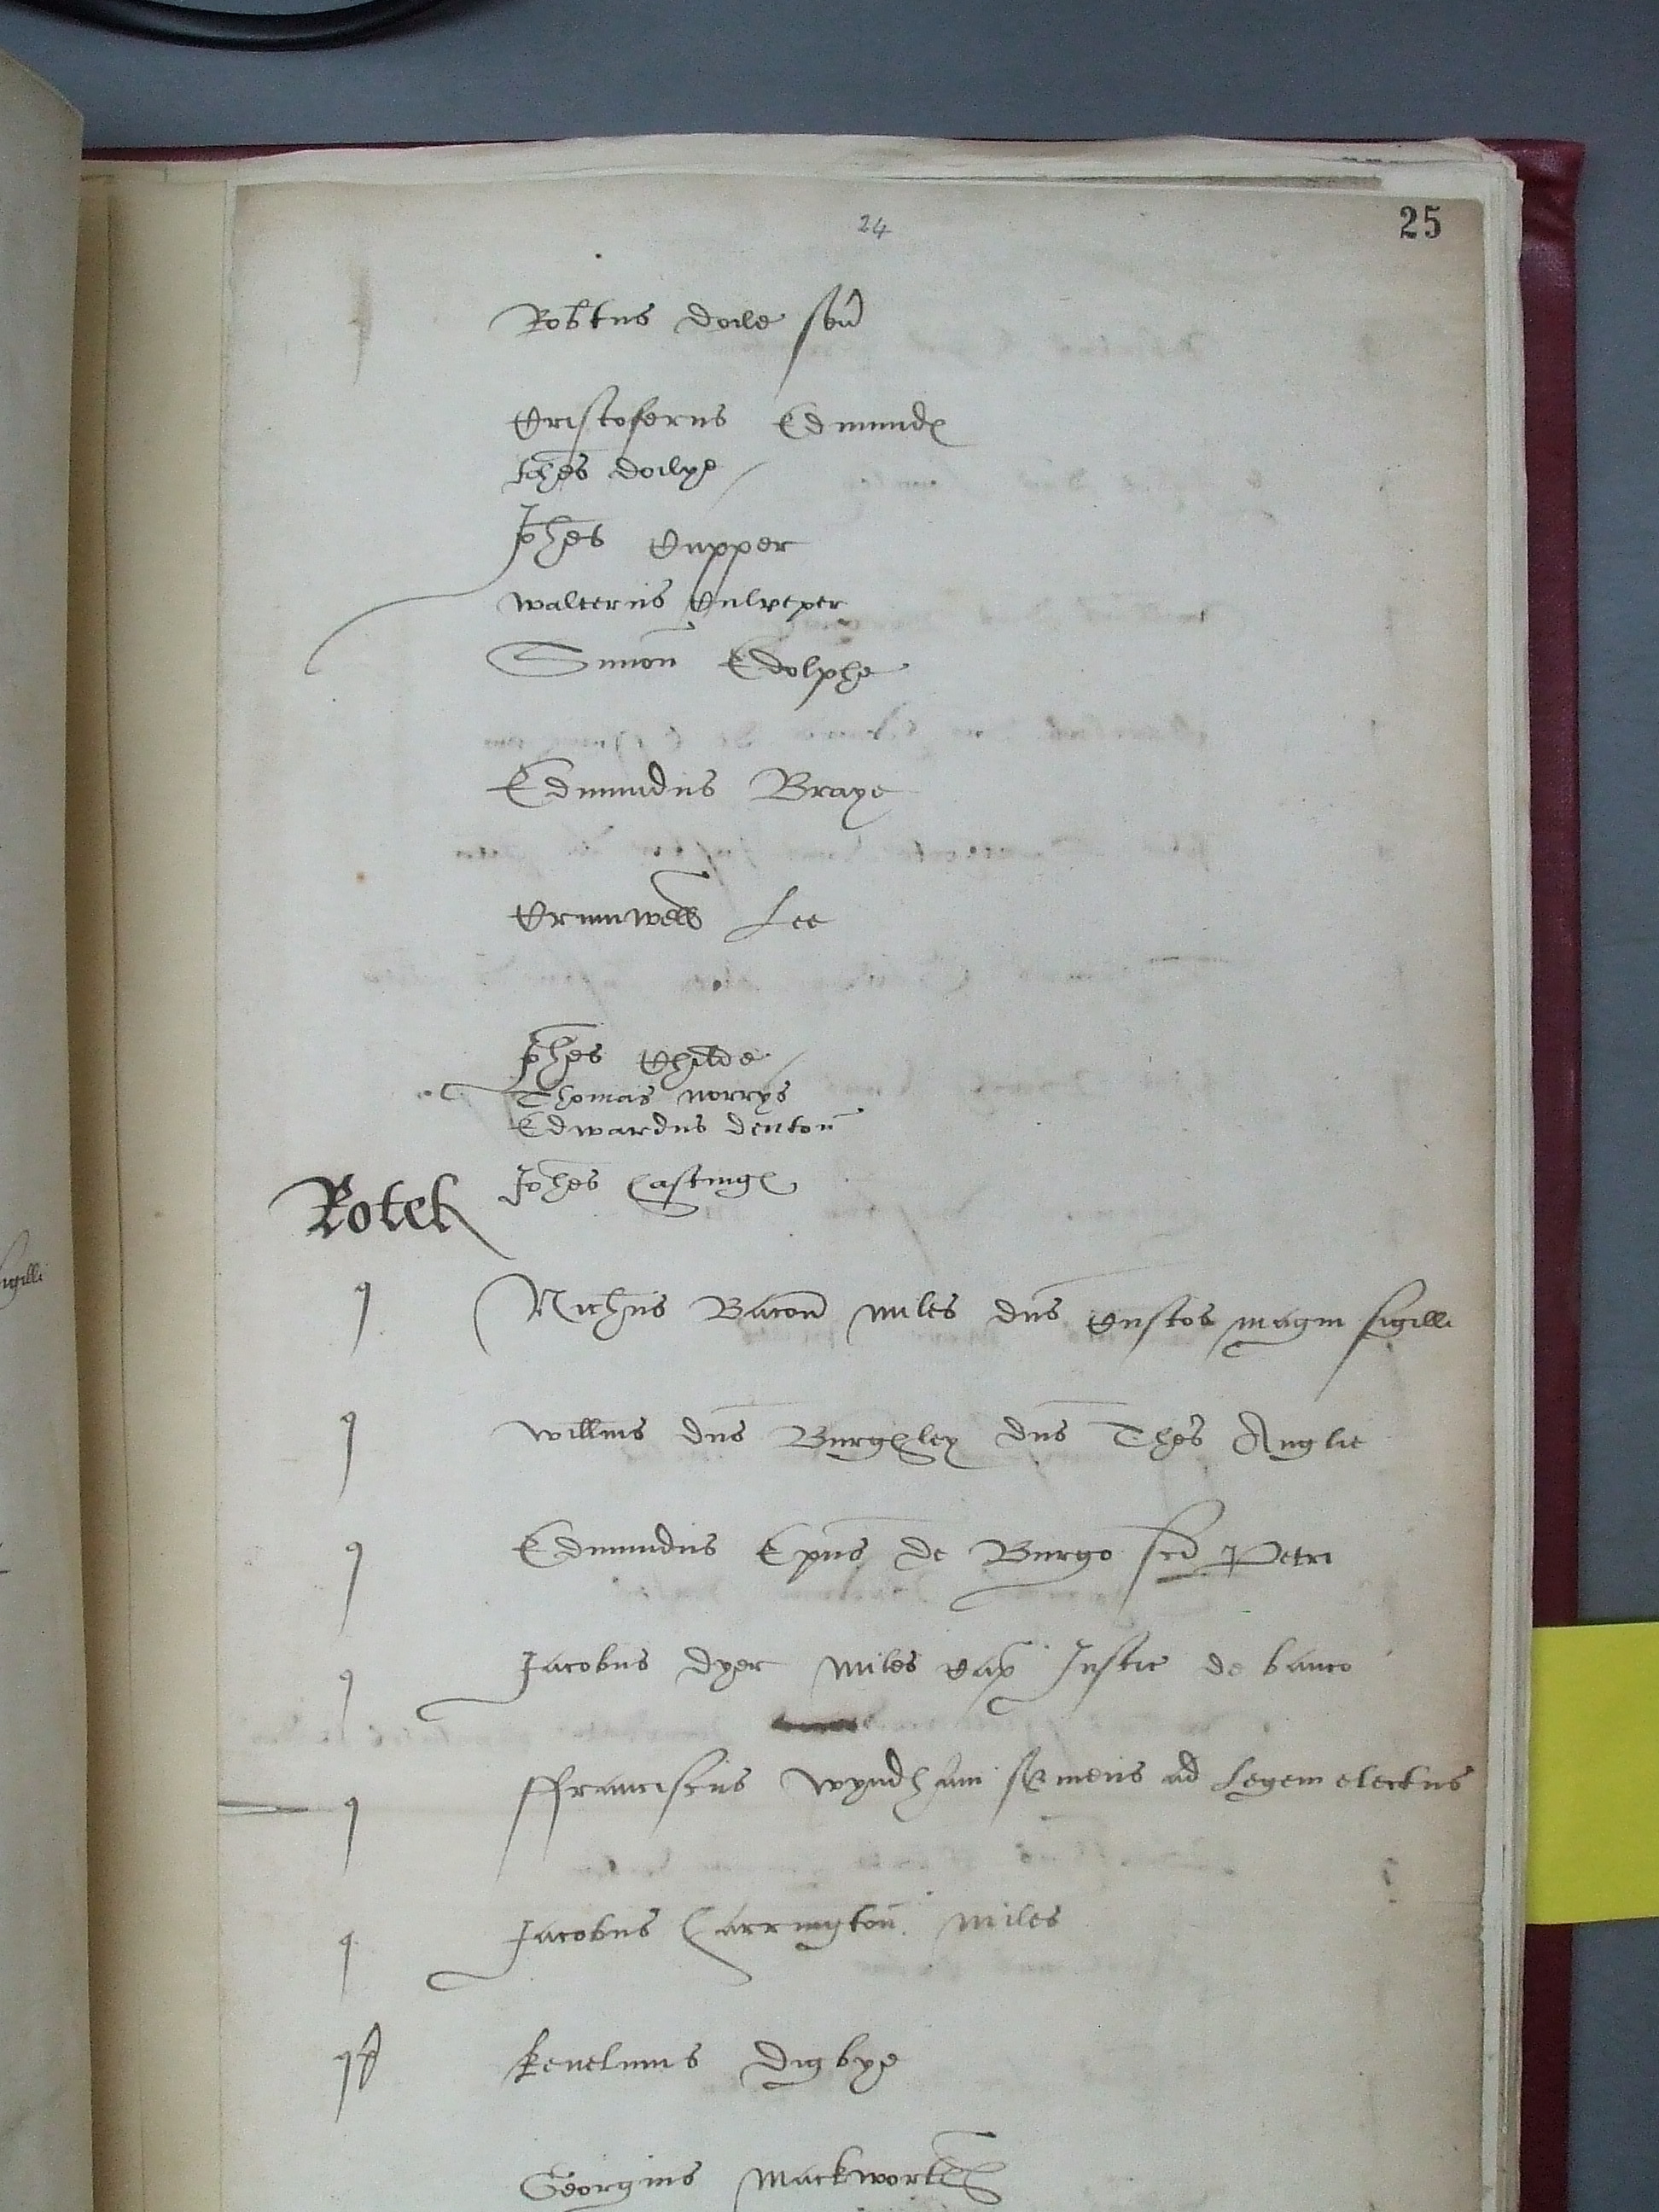 24
25
Rob̃tus doile señ
Cristoferus Edmund℮
Ioh̃es doilye
Ioh̃es Cupper
walterus Culpeper
Simon̄ Edolphe
Edmundus Braye
Crumwell Lee
Ioh̃es Childe
Thomas norrys
Edwardus denton̄
Ioh̃es hasting℮
Rotel
q Nich̃us Bacon̄ miles dn̄s Custos magni sigilli
q willm̃s dn̄s Burghley dn̄s Thes̃ Anglie
q Edmundus Ep̄us de Burgo sc̃i Petri
q Iacobus dyer miles Cap̄ Iustic de banco
q ffranciscus wyndham s̃uiens ad Legem electus
q Iacobus harrington̄ miles
q kenelmus Digbye
Georgius mackworth
igilli